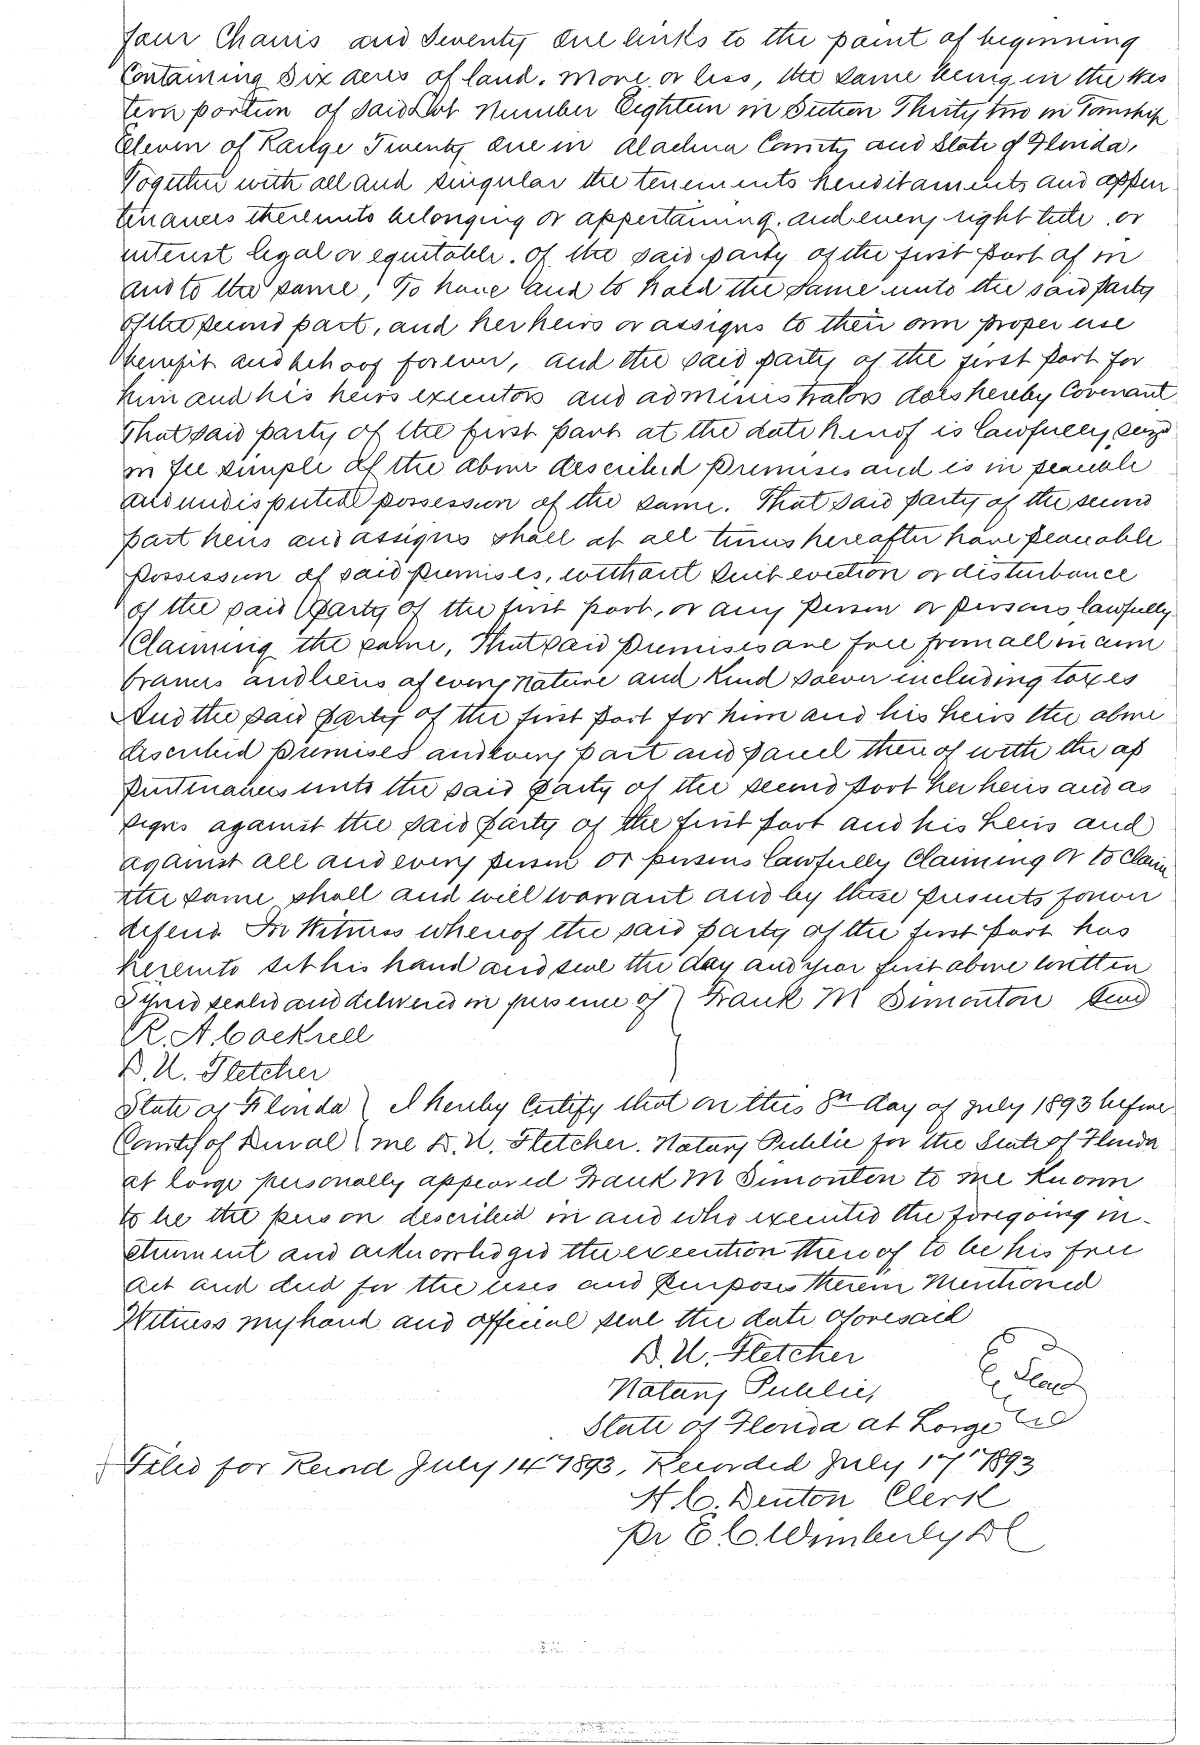 four Chains and Seventy One links to the point of beginning
Containing Six acres of land. More or less, the same being in the Wes
tern portion of Said Lot Number Eighteen in Section Thirty two in Township
Eleven of Range Twenty One in Alachua County and State of Florida,
Together with all and singular the tenements hereditaments and appur
tenances thereunto belonging or appertaining. and every right title or
interest legal or equitable. of the said party of the first part of in
and to the same, To have and to hold the same unto the said party
of the second part, and her heirs or assigns to their own proper use
benefit and behoof forever, and the said party of the first part for
him and his heirs executors and administrators does hereby Covenant
That said party of the first part at the date hereof is lawfully seizd
in fee simple of the above described premises and is in peacable
and undisputed possession of the same. That said party of the second
part heirs and assigns shall at all times hereafter have peacable
possession of said premises, without suit eviction or disturbance
of the said party of the first part, or any person or persons lawfully
Claiming the same, That said premises are free from all incum
brances and liens of every Nature and Kind soever including taxes
And the said party of the first part for him and his heirs the above
described premises and every part and parcel thereof with the ap
purtenances unto the said party of the second part her heirs and as
signs against the said party of the first part and his heirs and
against all and every person or persons lawfully Claiming or to Claim
the same shall and will warrant and by these presents forever
defend In Witness whereof the said party of the first part has
hereunto set his hand and seal the day and year first above written
Signed sealed and delivered in presence of } Frank M Simonton Seal
R. A. Cockrell
D. U. Fletcher
State of Florida } I hereby Certify that on this 8th day of July 1893 before
County of Duval } me D. U. Fletcher. Notary Public for the State of Florida
at large personally appeared Frank M Simonton to me Known
to be the person described in and who executed the foregoing in-
strument and acknowledged the execution thereof to be his free
act and deed for the uses and purposes therein Mentioned
Witness my hand and official seal the date aforesaid
D. U. Fletcher
Notary Public,
State of Florida at Large
Seal
Filed for Record July 14" 1893, Recorded July 17" 1893
H. C. Denton Clerk
Pr. E. C. Wimberly DC